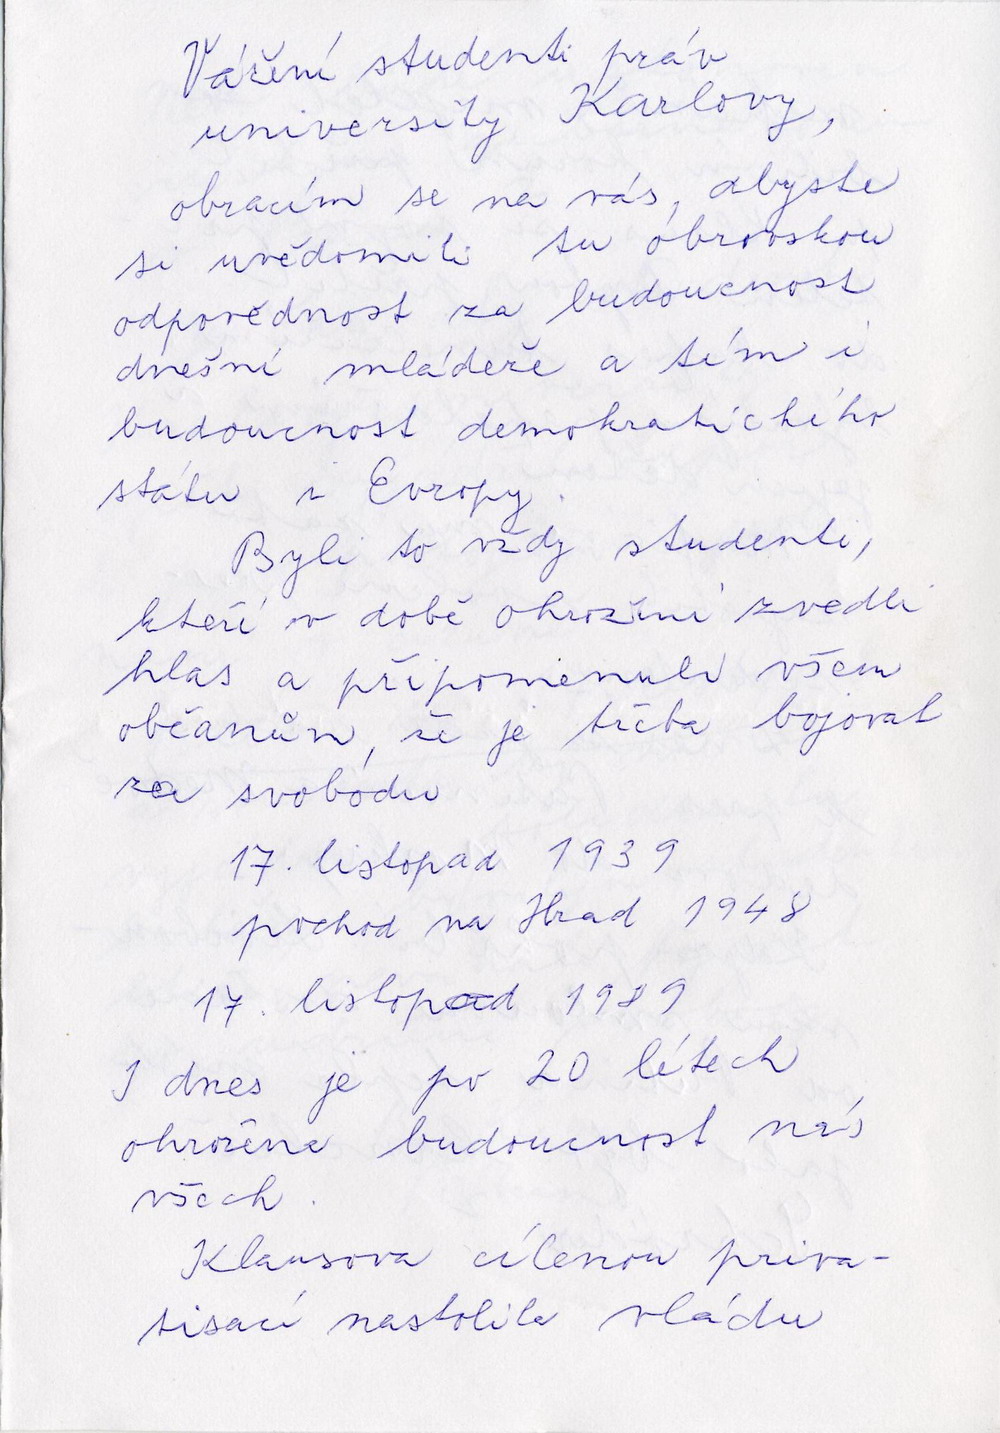 Vážení studenti práv
university Karlovy,
obracím se na vás, abyste
si uvědomili tu obrovskou
odpovědnost za budoucnost
dnešní mládeže a tím i
budoucnost demokratického
státu i Evropy.
Byli to vždy studenti,
kteří v době ohrožení zvedli
hlas a připomenuli všem
občanům, že je třeba bojovat
za svobodu
17. listopad 1939
pochod na Hrad 1948
17. listopad 1989
I dnes je po 20 létech
ohrožena budoucnost nás
všech.
Klausova cílenou priva-
tisací nastolila vládu